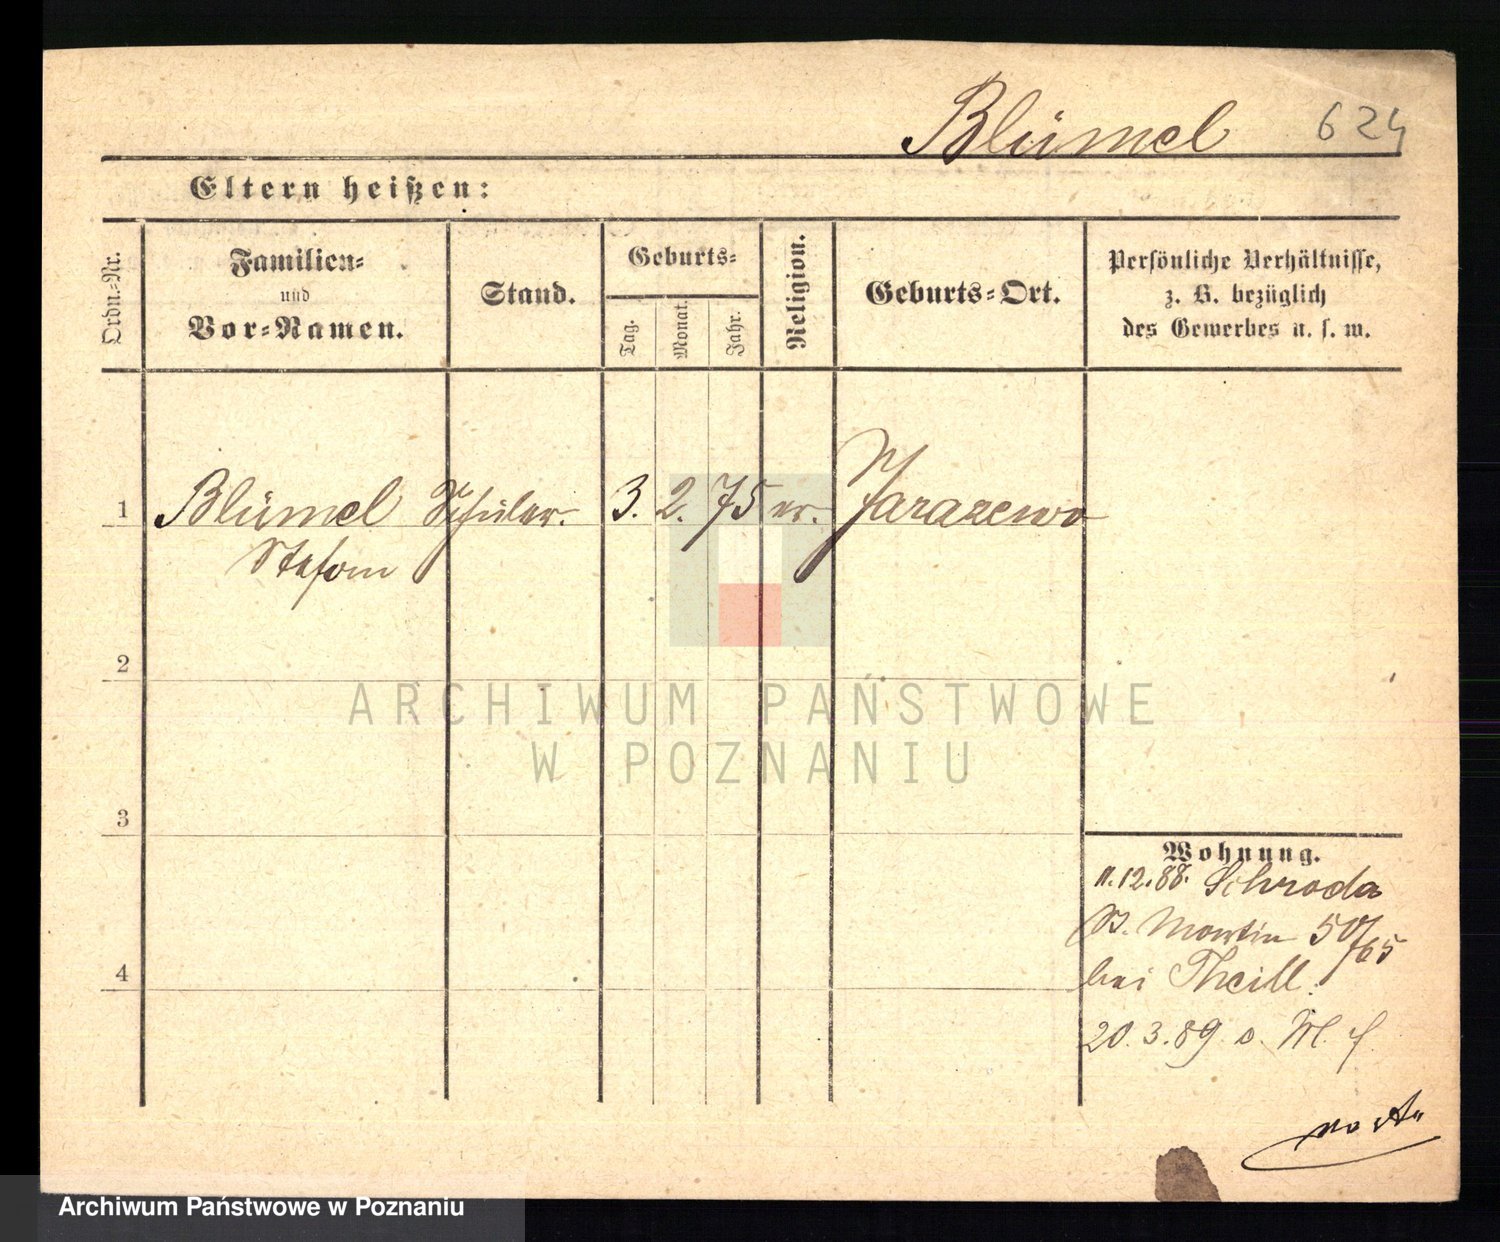 Blümel 624
Eltern heißen:
Ordn.-Nr.
Familien-
und
Vor-Namen.
Stand.
Geburts-
Tag.
Monat.
Jahr.
Religion.
Geburts-Ort.
Persönliche Verhältnisse,
z. B. bezüglich
des Gewerbes u. s. w.
1 Blümel Schüler. 3. 2. 75 Jarazewo
Stefan
2
3
4
ARCHIWUM PAŃSTWOWE
W POZNANIU
Wohnung.
11.12.88. Schroda
St. Martin 50/65
bei Theill.
20.3.89 o. M. f.
Archiwum Państwowe w Poznaniu